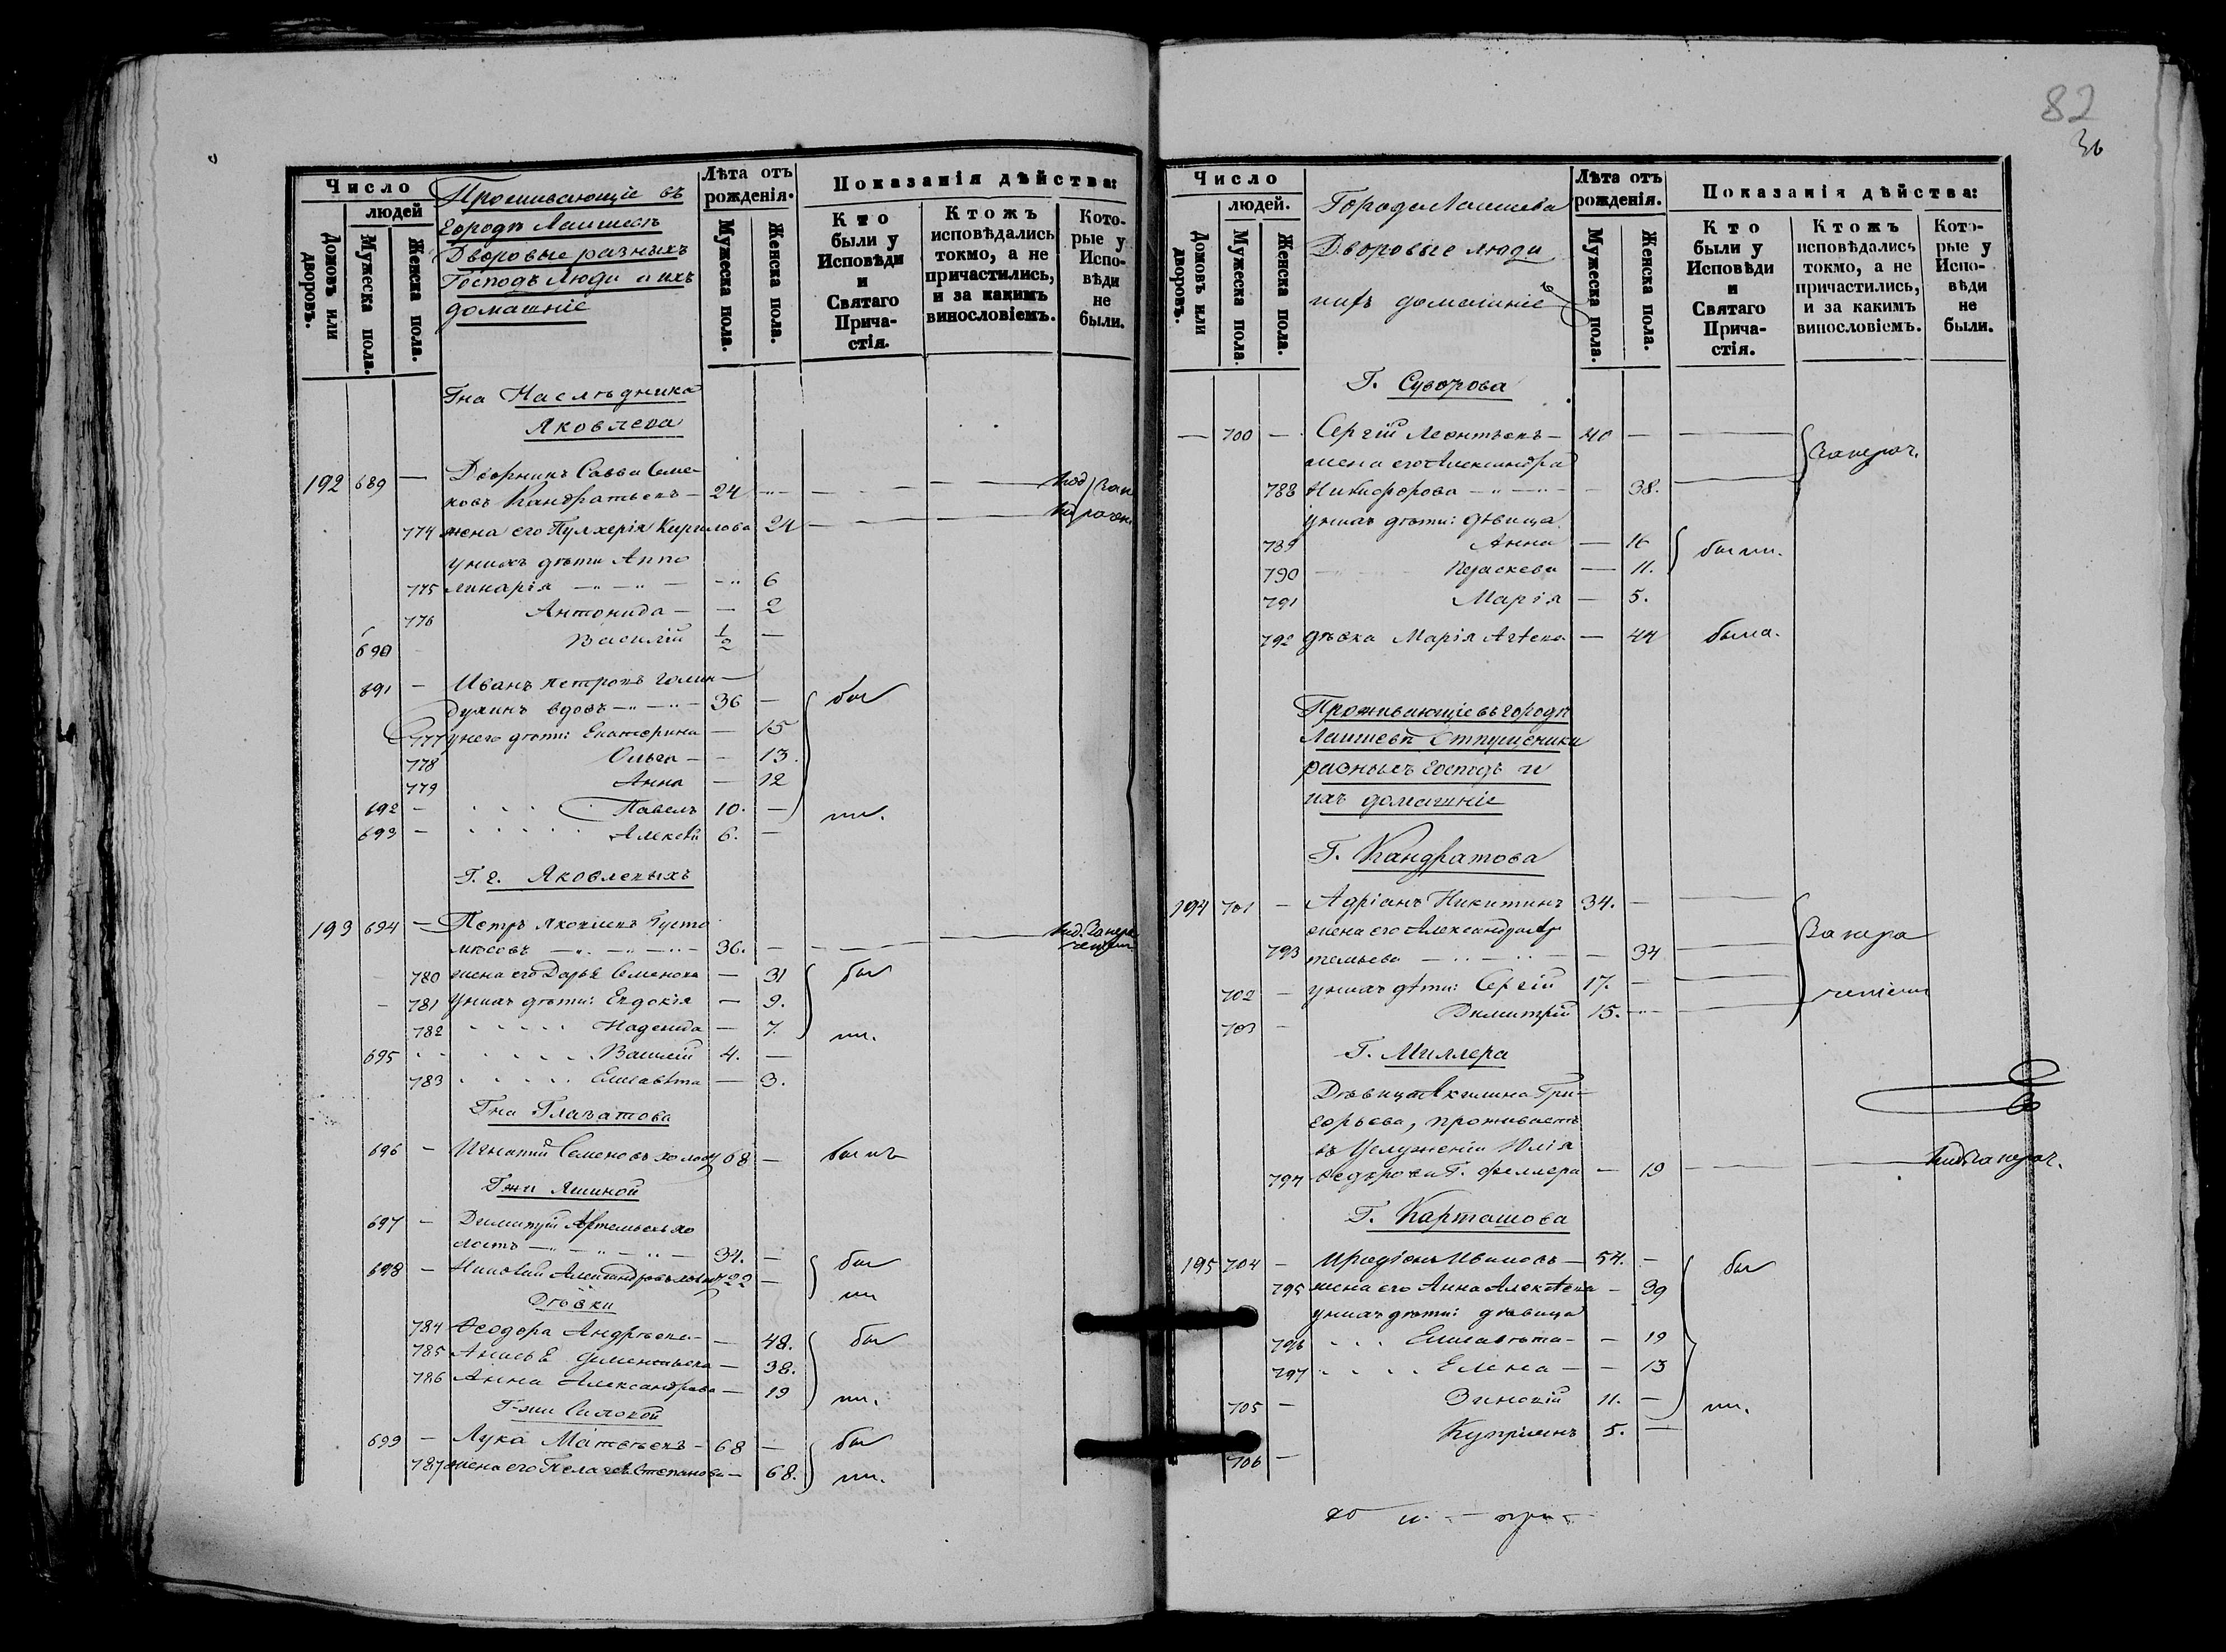 Число
людей
Домовъ или дворовъ.
Мужеска пола.
Женска пола.
Проживающіе въ
городѣ Лаишевѣ
Дворовые разныхъ
Господъ люди и ихъ
домашніе
Лѣта отъ
рожденія.
Мужеска пола.
Женска пола.
Показанія дѣйства:
Кто
были у
Исповѣди
и
Святаго
Прича-
стія.
Ктожъ
исповѣдались
токмо, а не
причастились,
и за какимъ
винословіемъ.
Кото-
рые у
Испо-
вѣди
не
были.
Гна Наслѣдника
Яковлева
192 689 — Дворникъ Савва Семе-
новъ Кандратьевъ — 24
774 жена его Пулхерія Кирилова 24
у нихъ дѣти Аппо
775 линарія — 6
776 Антонида — — 2
690 Василій 1/2 —
691 — Иванъ Петровъ
вдовъ — 36 — бы
777 у него дѣти: Екатерина — 15
778 Ольга — — 13
779 Анна — 12
692 — Павелъ 10. — ли.
693 — Алексѣй 6. —
Г. г. Яковлевыхъ
193 694 — Петръ Яковлевъ Густо
мясовъ — 36. —
780 жена его Дарья Семенова — 31 бы
781 у нихъ дѣти: Евдокія — 9.
782 Надежда — 7. ли.
695 Василій 4. —
783 Елисавѣта — 3.
Гна Глазатова
696 — Игнатій Семеновъ холос 68 — былъ
Гжи
697 — Димитрій Артемьевъ хо
лостъ — 34. — бы
698 — Николай Александровъ 22 — ли
Дѣвки
784 Ѳеодора Андреева — — 48. бы
785 Анисья Дементьева — 38.
786 Анна Александрова — 19 ли.
Г-жи
699 — Лука Матвѣевъ — 68 — бы
787 жена его Пелагея Степанова — 68. ли.
82
30
Число
людей.
Домовъ или дворовъ.
Мужеска пола.
Женска пола.
Города Лаишева
Дворовые люди
и ихъ домашніе
Лѣта отъ
рожденія.
Мужеска пола.
Женска пола.
Показанія дѣйства:
Кто
были у
Исповѣди
и
Святаго
Прича-
стія.
Ктожъ
исповѣдались
токмо, а не
причастились,
и за какимъ
винословіемъ.
Кото-
рые у
Испо-
вѣди
не
были.
Г. Суворова
— 700 — Сергій Леонтьевъ — 40 —
жена его Александра
788 Никифорова — 38.
у нихъ дѣти: дѣвица
789 Анна — 16 были.
790 Праскева — 11.
791 Марія — 5.
792 дѣвка Марія — 44 была.
Проживающіе въ городѣ
Лаишевѣ Отпущеники
разныхъ господъ и
ихъ домашніе
Г. Кандратова
194 701 — Адріанъ Никитинъ 34. —
жена его Александра Ар
793 темьева — 34
702 — у нихъ дѣти: Сергій 17. —
703 — Димитрій 15.
Г. Миллера
Дѣвица Акилина Гри-
горьева, проживаетъ
въ Услуженіи
794 Г. Феллера — 19
Г. Карташова
195 704 — Иродіонъ Ивановъ — 54. — бы
795 жена его Анна Алексѣева — 39
у нихъ дѣти: дѣвица
796 Елисавѣта — — 19
797 Елена — — 13
705 — 11. — ли.
706 — Купріянъ 5. —